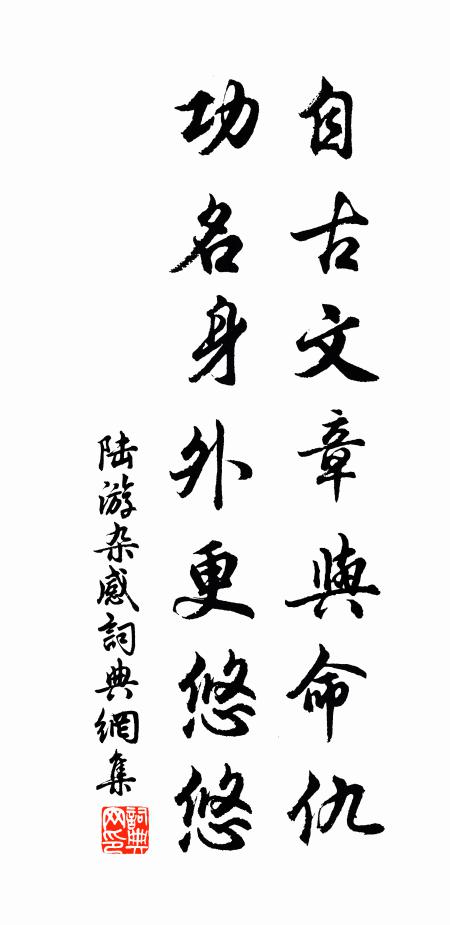 自古文章與命仇
功名身外更悠悠
陆游杂感詞典網集
詞典网印